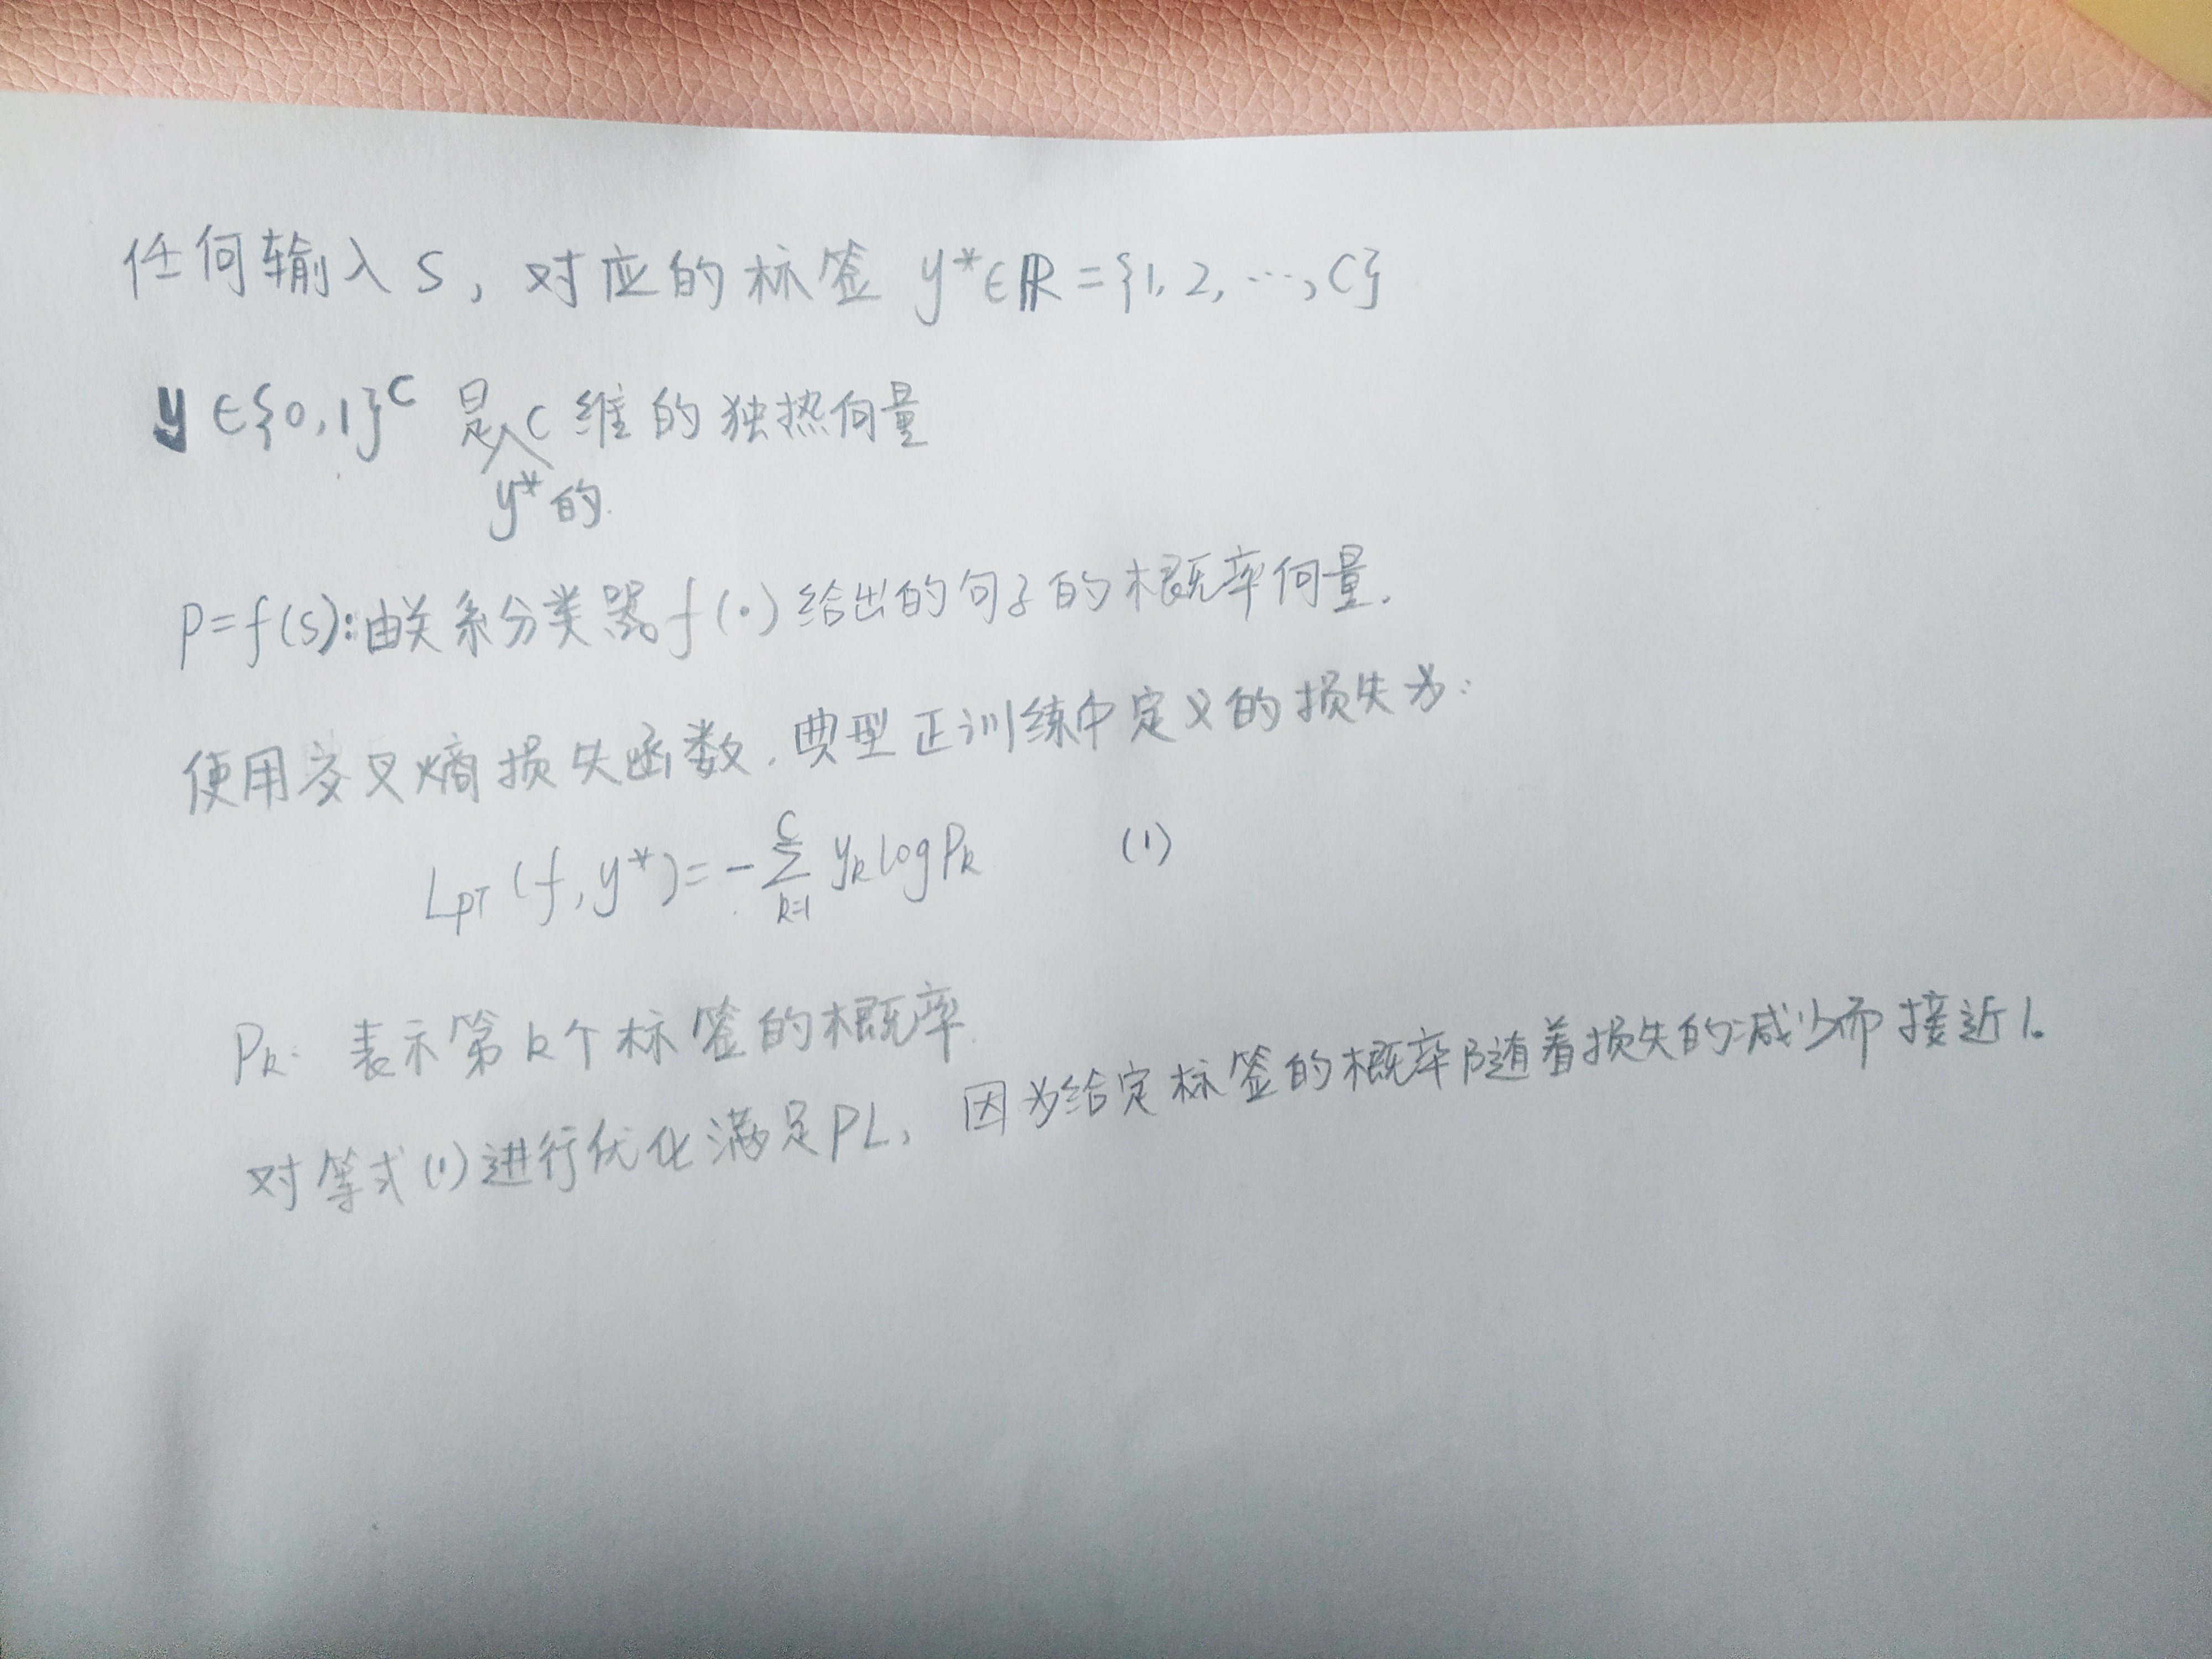 任何输入 s，对应的标签 y*∈ℝ={1, 2, …, C}
y∈{0,1}^C 是y*的C维的独热向量
P=f(s):由关系分类器f(·)给出的句子的概率向量.
使用交叉熵损失函数.典型正训练中定义的损失为:
L_PT(f,y*)=-∑_{k=1}^{C} y_k log P_k (1)
P_k: 表示第k个标签的概率.
对等式(1)进行优化满足PL，因为给定标签的概率随着损失的减少而接近1。